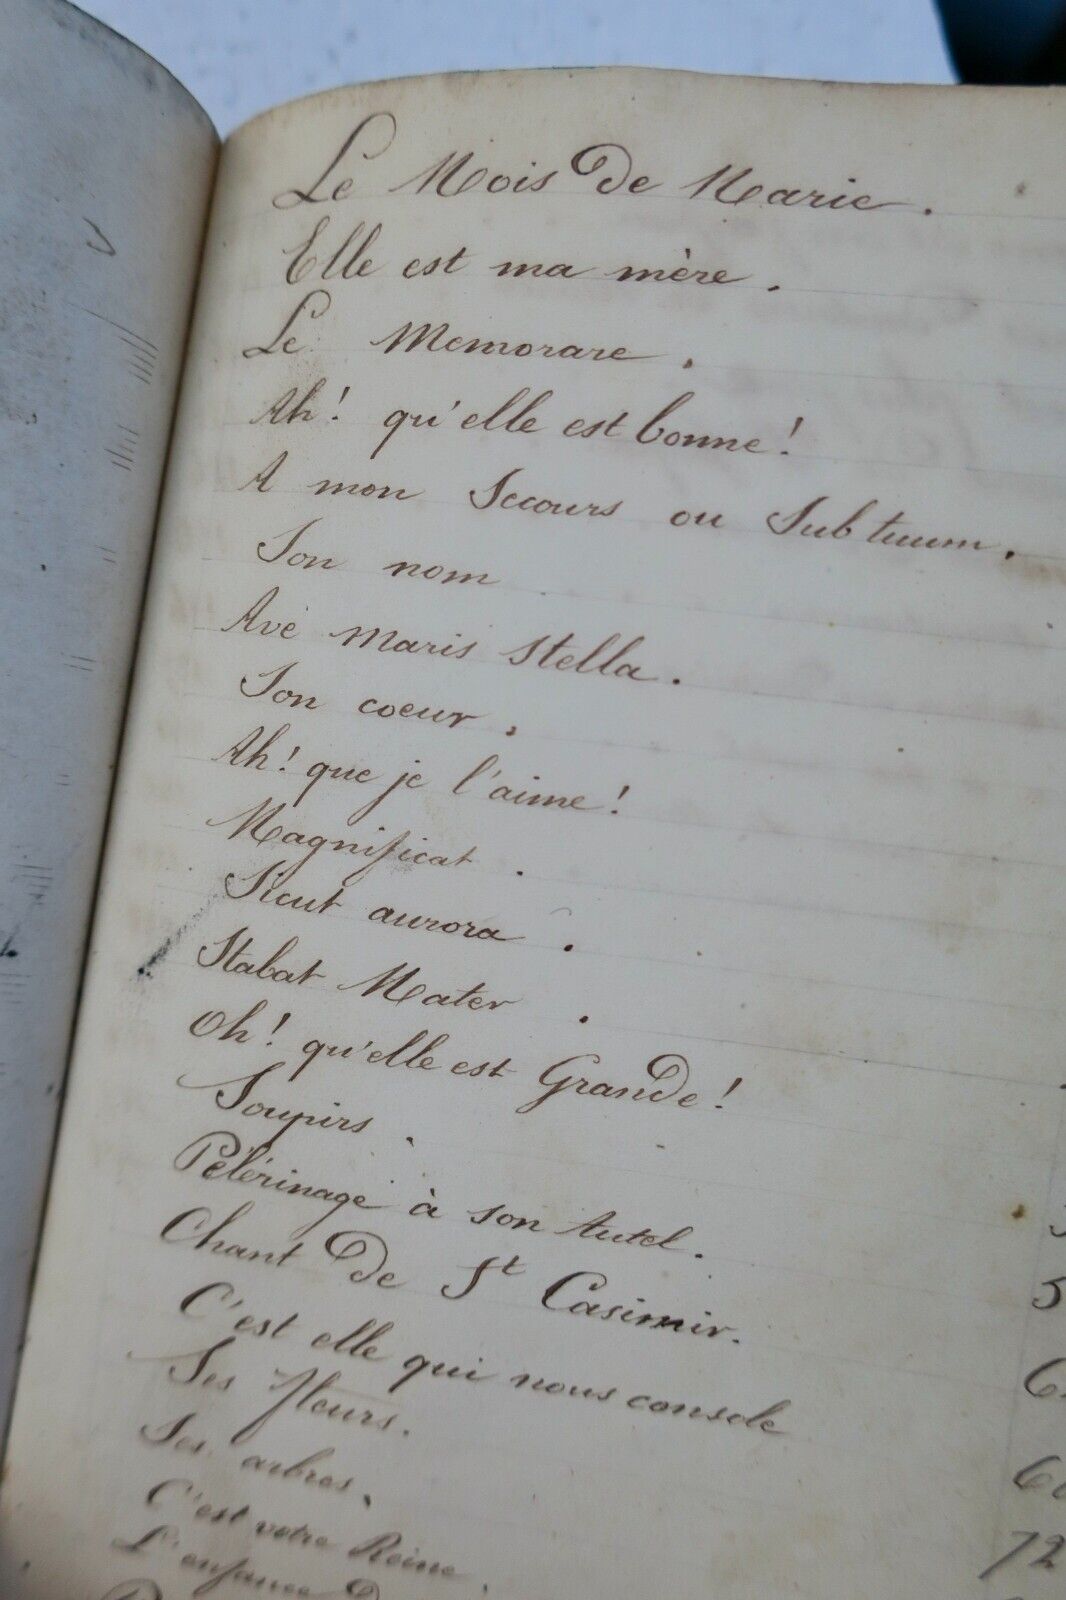 Le Mois de Marie.
Elle est ma mère.
Le Memorare.
Ah! qu'elle est bonne!
A mon Secours ou Sub tuum.
Son nom
Avé Maris Stella.
Son coeur.
Ah! que je l'aime!
Magnificat.
Sicut aurora.
Stabat Mater.
Oh! qu'elle est Grande!
Soupirs.
Pélérinage à son Autel.
Chant de St Casimir.
C'est elle qui nous console
Ses fleurs.
Ses arbres.
C'est votre Reine.
72
L'enfance